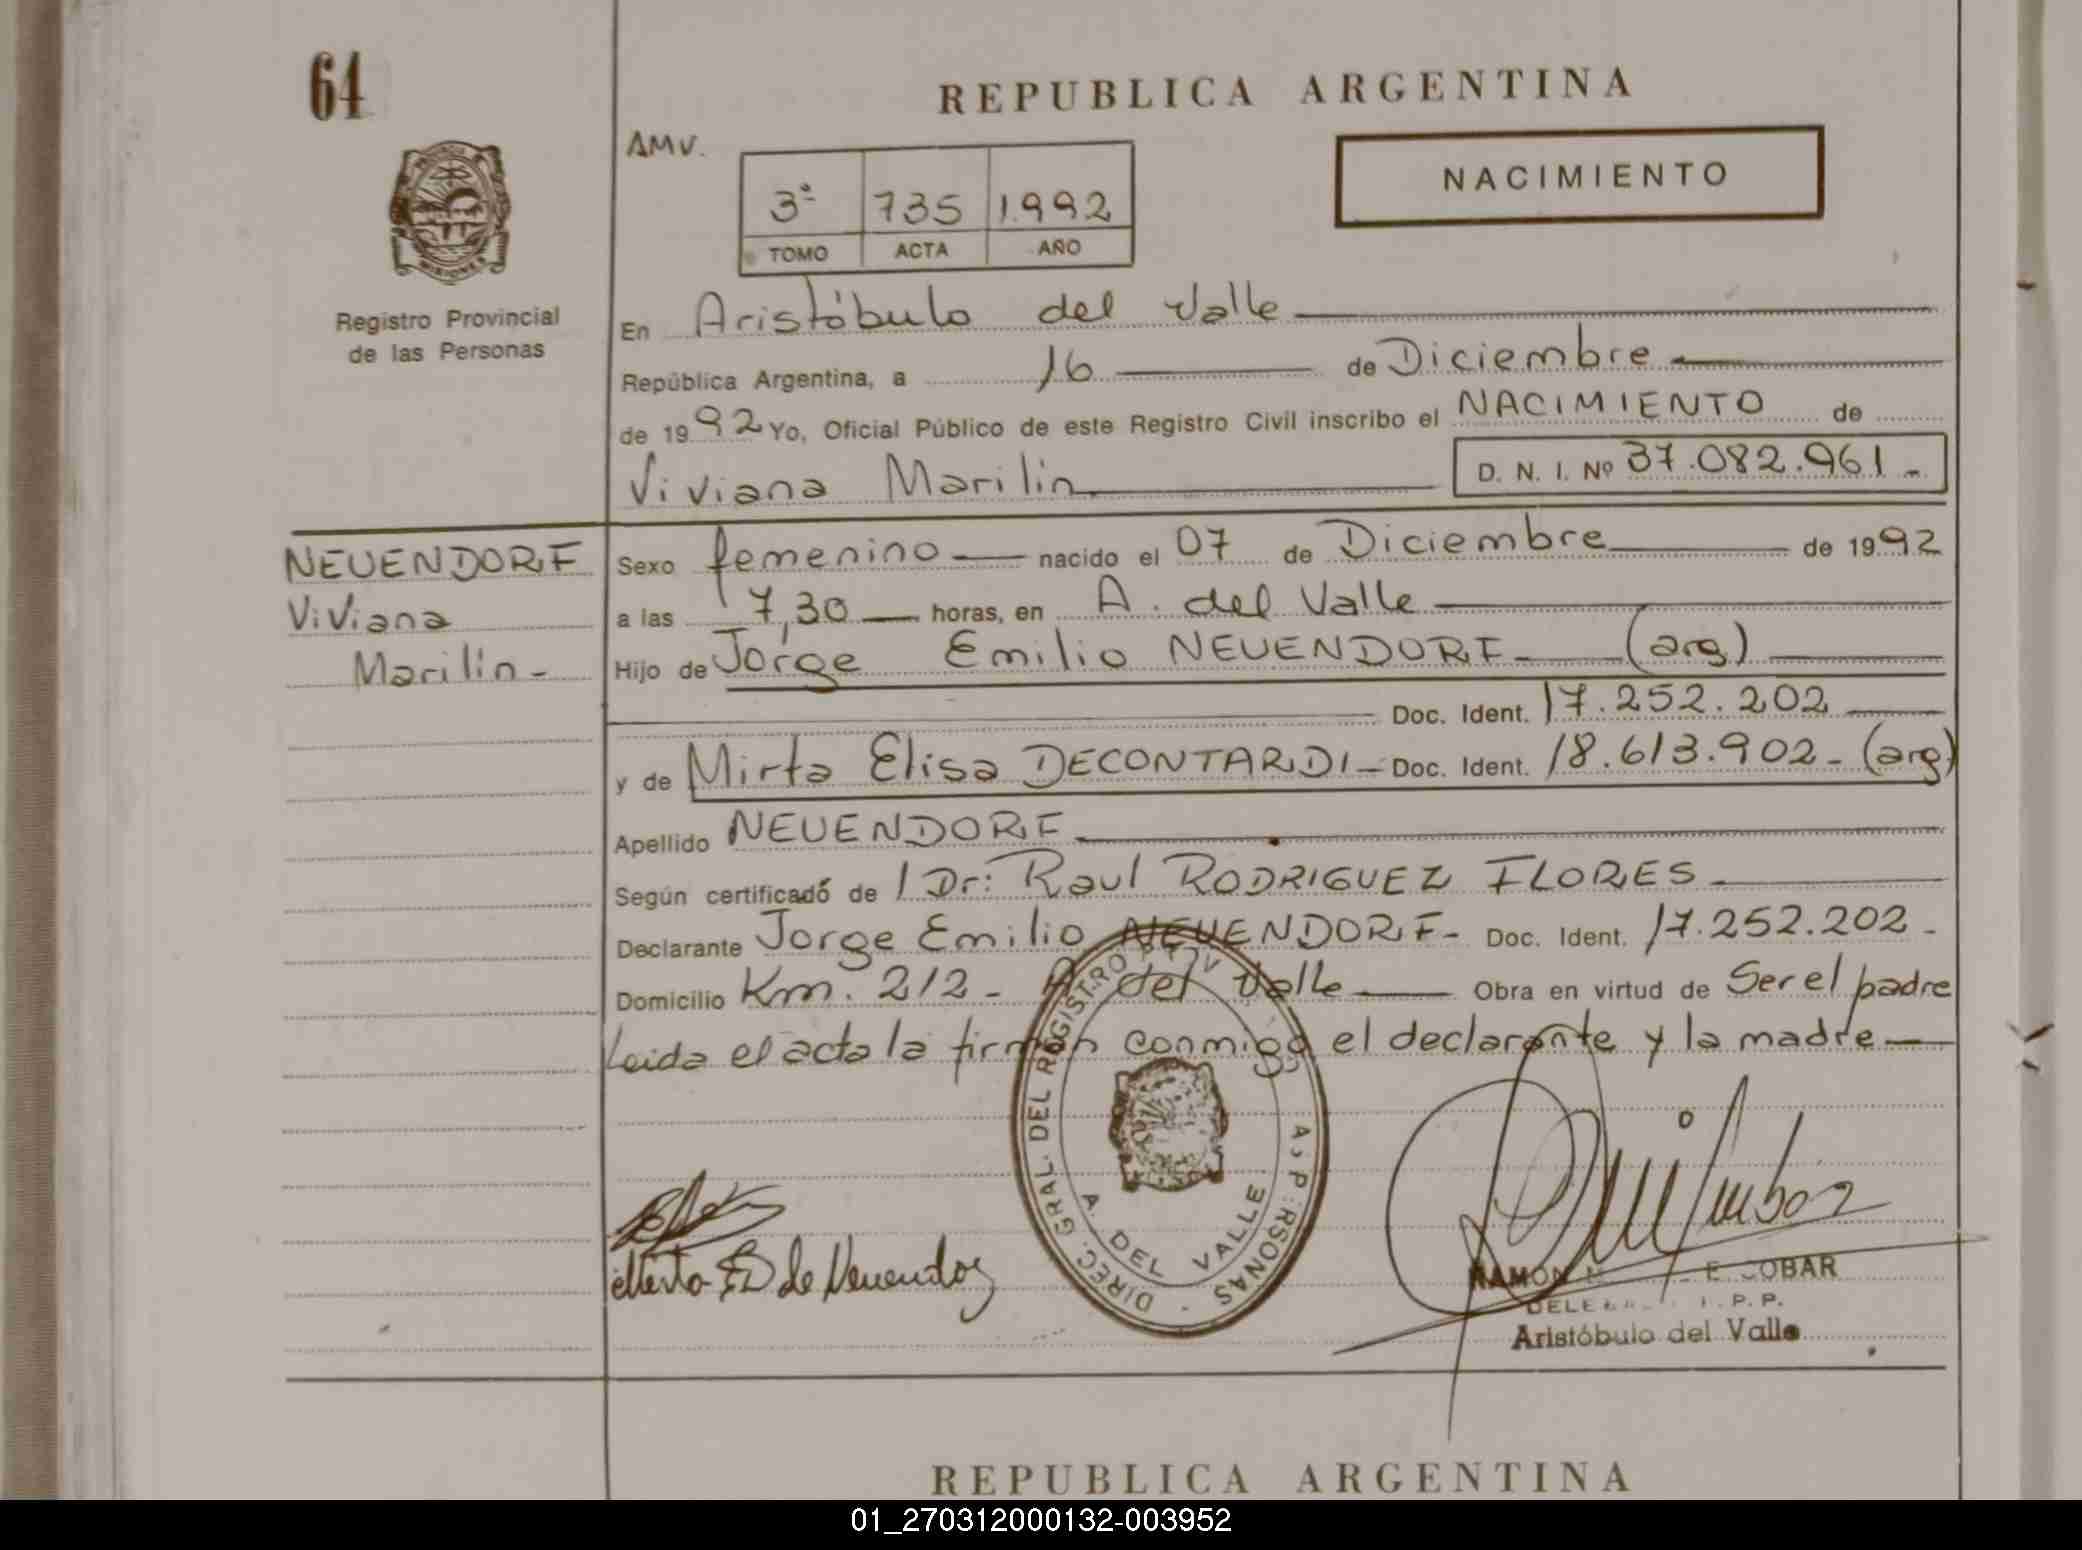 64
REPUBLICA ARGENTINA
AMV.
NACIMIENTO
3ª 735 1992
TOMO ACTA AÑO
PROVINCIA
MISIONES
Registro Provincial
de las Personas
En Aristóbulo del Valle
República Argentina, a 16 de Diciembre
de 1992 Yo, Oficial Público de este Registro Civil inscribo el NACIMIENTO de
Viviana Marilin D. N. I. Nº 37.082.961.-
NEUENDORF
Viviana
Marilin-
Sexo femenino nacido el 07 de Diciembre de 1992
a las 7,30 horas, en A. del Valle
Hijo de Jorge Emilio NEUENDORF (arg)
Doc. Ident. 17.252.202
y de Mirta Elisa DECONTARDI- Doc. Ident. 18.613.902- (arg)
Apellido NEUENDORF
Según certificadó de l Dr: Raul RODRIGUEZ FLORES
Declarante Jorge Emilio NEUENDORF- Doc. Ident. 17.252.202-
Domicilio Km. 212- A del Valle Obra en virtud de Ser el padre
Leida el acta la firman conmigo el declarante y la madre
DIREC. GRAL. DEL REGISTRO
A. DEL VALLE
de Neuendorf
RAMON
Aristóbulo del Valle
REPUBLICA ARGENTINA
01_270312000132-003952